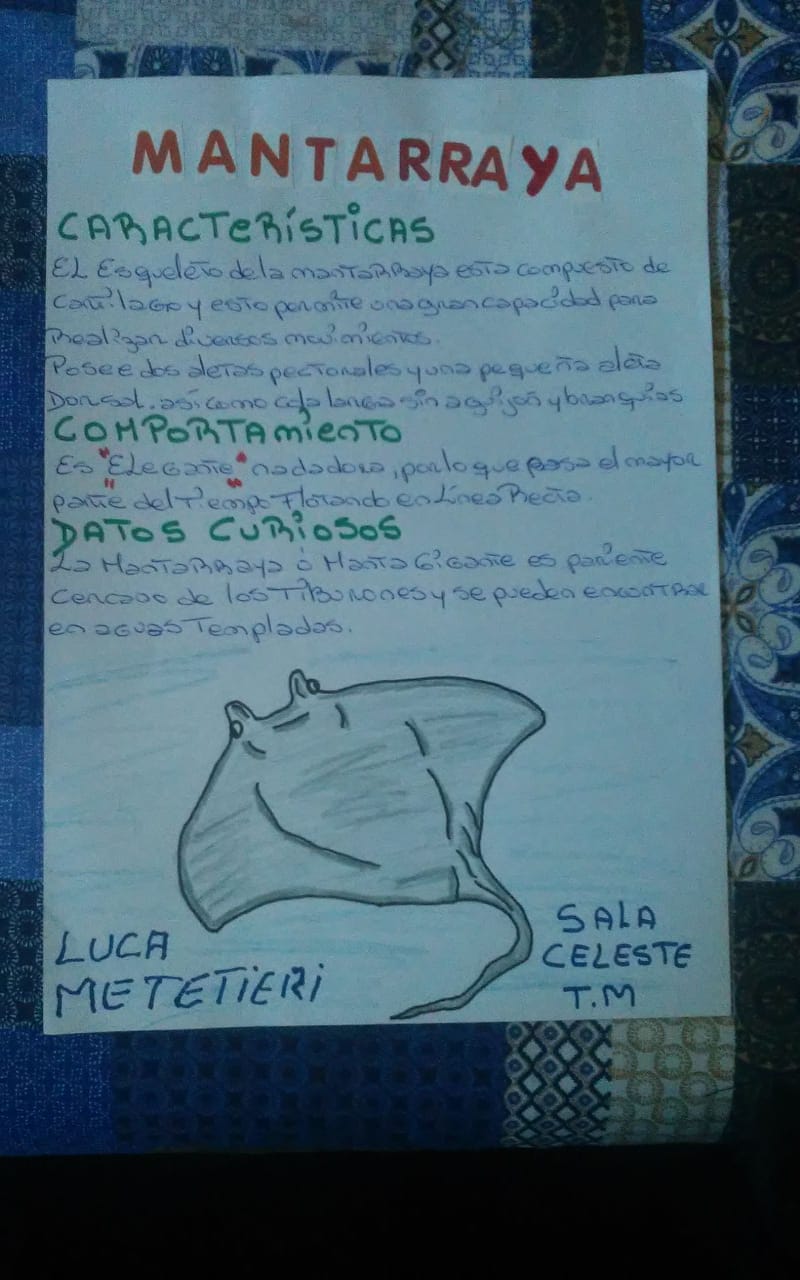 MANTARRAYA
CARACTERÍSTICAS
EL Esqueleto de la mantarraya esta compuesto de
cartilago y esto permite una gran capacidad para
Realizar diversos movimientos.
Posee dos aletas pectorales y una pequeña aleta
Dorsal. así como cola larga sin aguijon y branquias
COMPORTAmiento
Es "Elegante" nadadora, por lo que pasa el mayor
parte del "Tiempo" Flotando en Línea Recta.
DATOS CURIOSOS
La Mantarraya ó Manta Gigante es pariente
cercano de los Tiburones y se pueden encontrar
en aguas Templadas.
LUCA
METETIERI
SALA
CELESTE
T.M